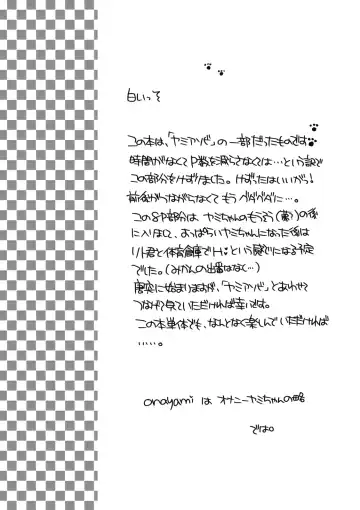 白いっそ
この本は、「ヤミアソビ」の一部だったものです
時間がなくてP数を減らさなくては…という訳で
この部分をけずりました。けずったはいいがら!
前後がつながらなくてもうグダグダに…。
この8P部分は、ヤミちゃんのもうそう(薬)の後
に入りまして、おっぱいヤミちゃんになった後は
リト君と体育倉庫でHという感じになる予定
でした。(みかんの出番はなく…)
唐突に始まりますが、「ヤミアソビ」とあわせて
つなげて見ていただければ幸いです。
この本単体でも、なんとなく楽しんでいただければ
……。
onayamiはオナニーヤミちゃんの略
では。